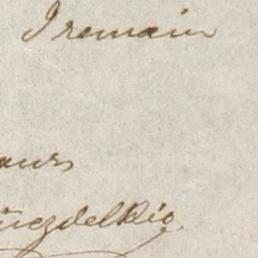 I remain
ours
ñezdelRio